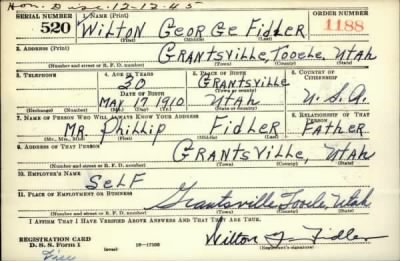 Hon. Disc. 12-17-45
SERIAL NUMBER 1. NAME (Print) ORDER NUMBER
520 WILTON GEORGE FIDLER 1188
(First) (Middle) (Last)
2. ADDRESS (Print)
GRANTSVILLE, TOOELE, UTAH
(Number and street or R. F. D. number) (Town) (County) (State)
3. TELEPHONE 4. AGE IN YEARS 5. PLACE OF BIRTH 6. COUNTRY OF CITIZENSHIP
30 GRANTSVILLE
DATE OF BIRTH (Town or county)
MAY 17 1910 UTAH U.S.A.
(Exchange) (Number) (Mo.) (Day) (Yr.) (State or country)
7. NAME OF PERSON WHO WILL ALWAYS KNOW YOUR ADDRESS 8. RELATIONSHIP OF THAT PERSON
MR. PHILLIP FIDLER FATHER
(Mr., Mrs., Miss) (First) (Middle) (Last)
9. ADDRESS OF THAT PERSON
GRANTSVILLE, UTAH
(Number and street or R. F. D. number) (Town) (County) (State)
10. EMPLOYER'S NAME
SELF
11. PLACE OF EMPLOYMENT OR BUSINESS
Grantsville Tooele Utah
(Number and street or R. F. D. number) (Town) (County) (State)
I AFFIRM THAT I HAVE VERIFIED ABOVE ANSWERS AND THAT THEY ARE TRUE.
REGISTRATION CARD
D. S. S. Form 1 (over) 16—17105 Wilton G. Fidler
(Registrant's signature)